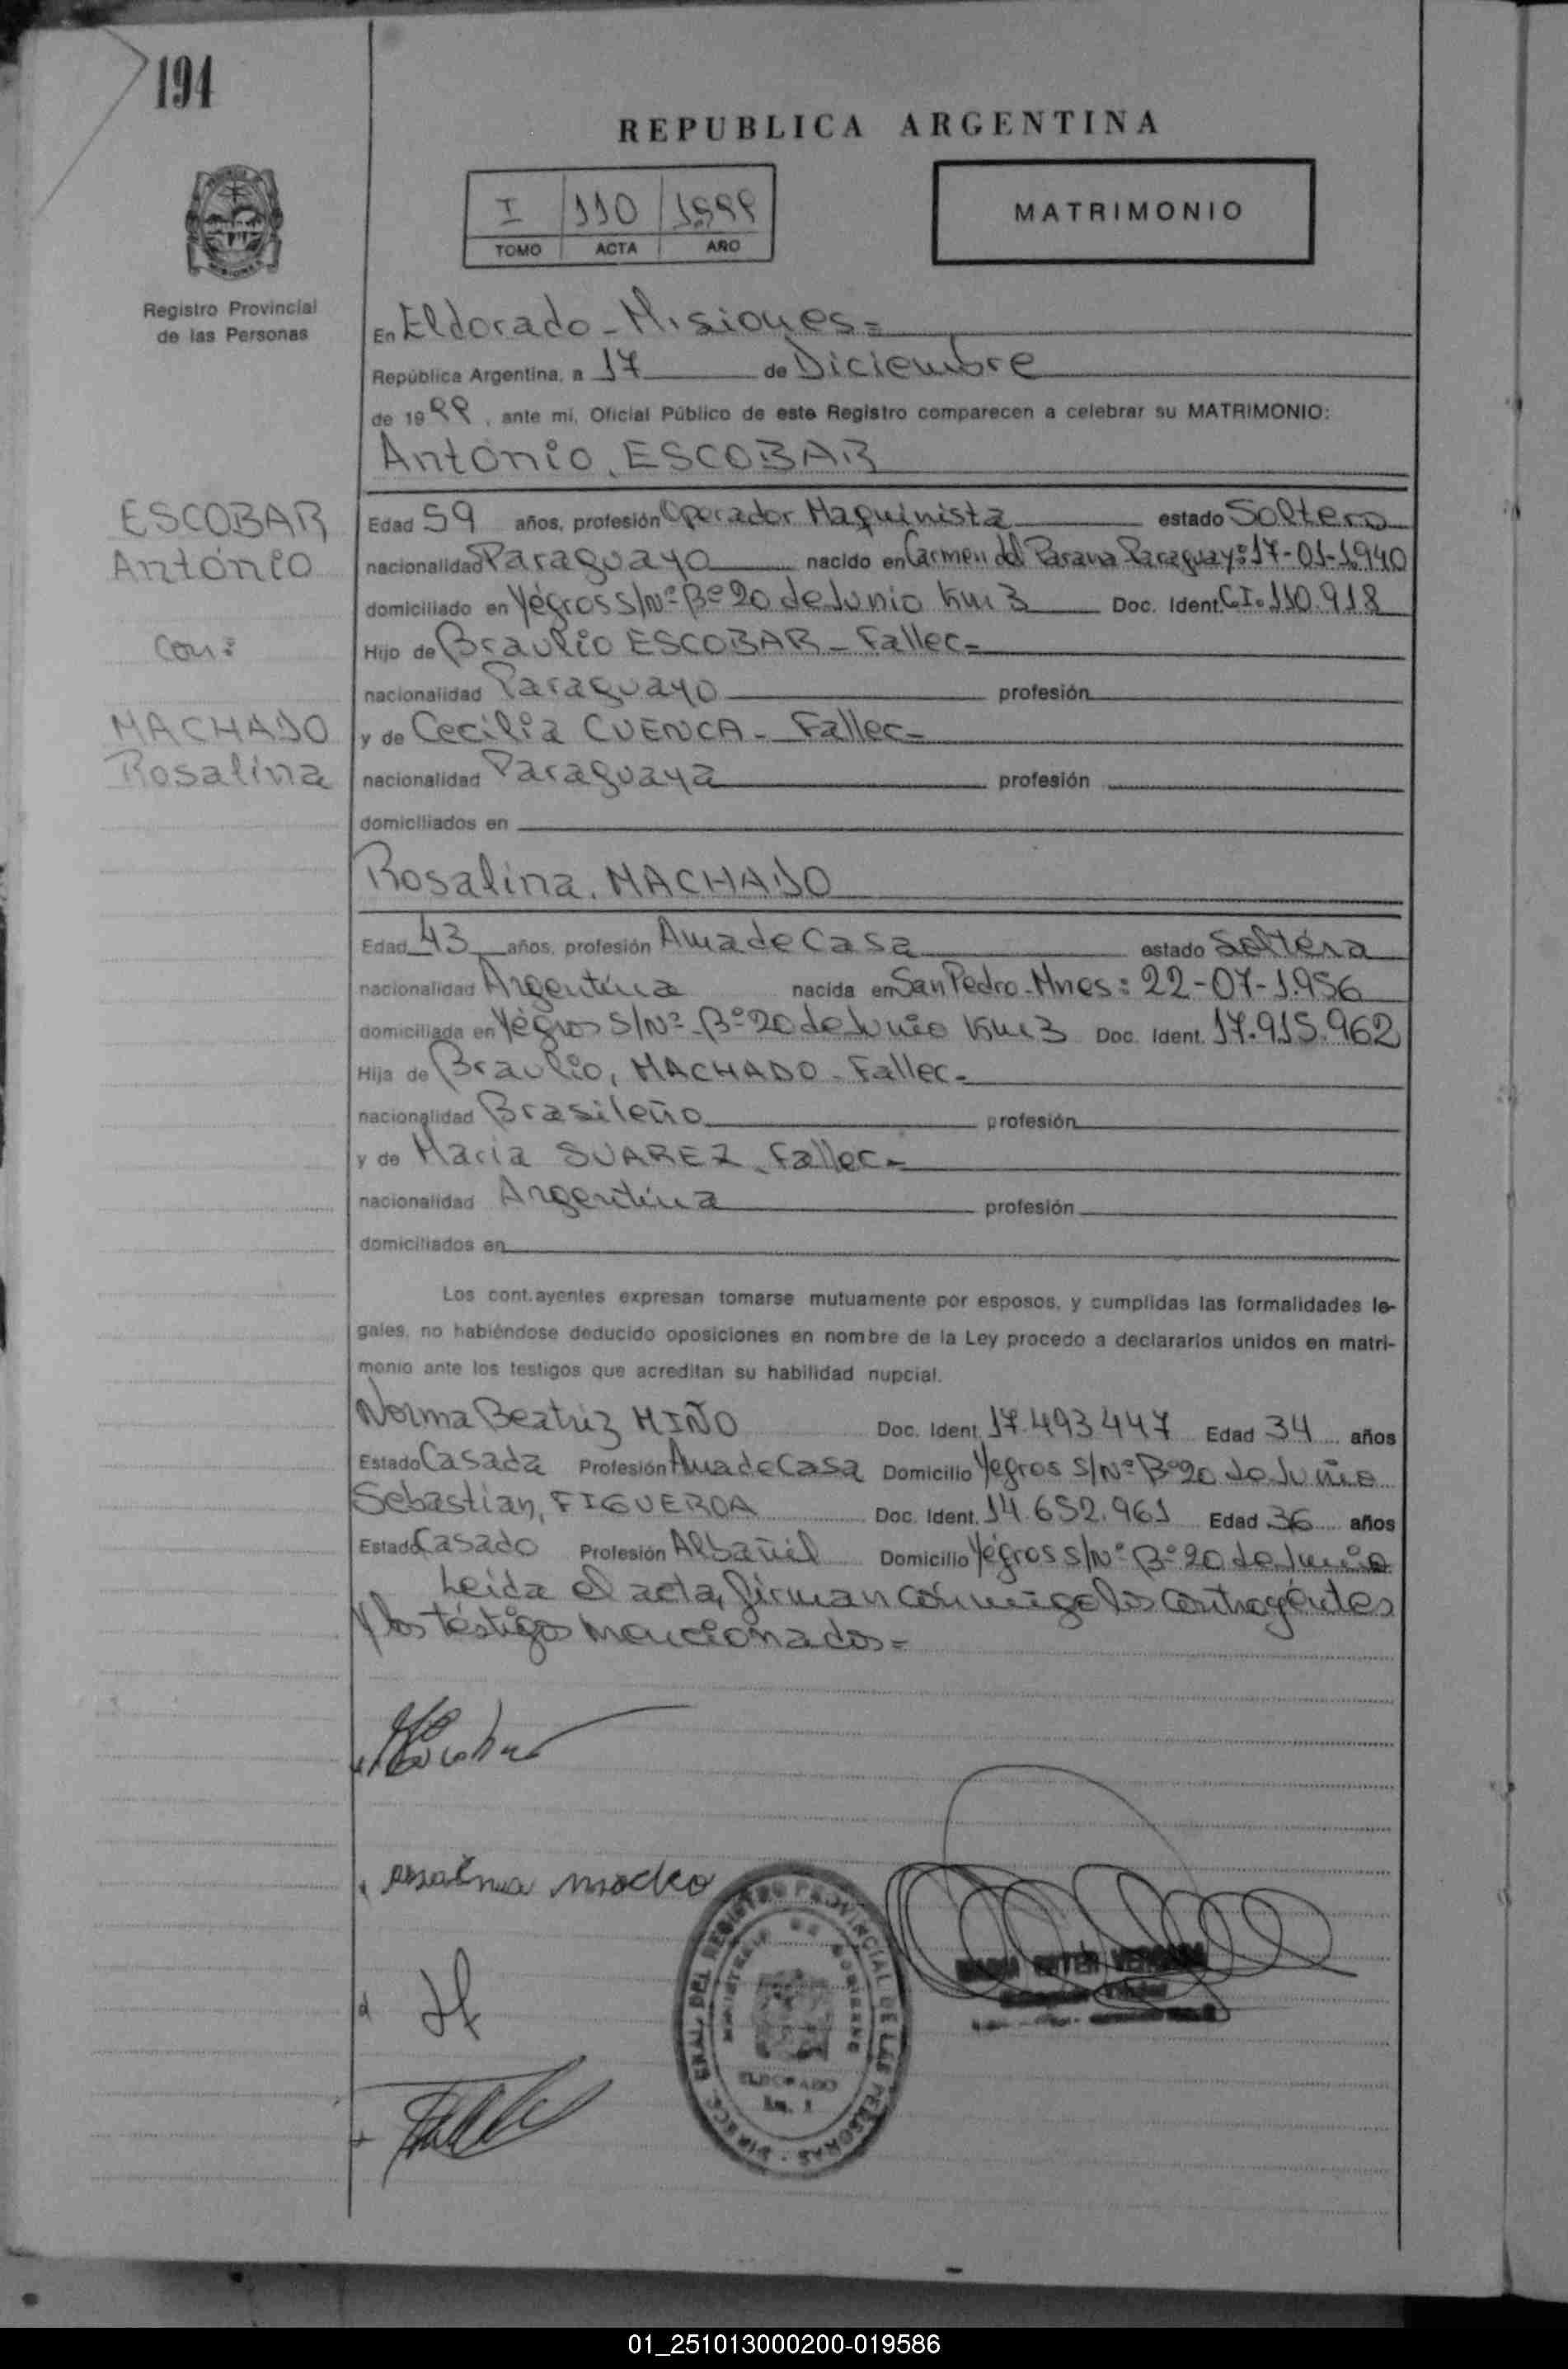 194
REPUBLICA ARGENTINA
I 110 1999
TOMO ACTA AÑO
MATRIMONIO
Registro Provincial
de las Personas
En Eldorado - Misiones =
República Argentina, a 17 de Diciembre
de 1999, ante mi, Oficial Público de este Registro comparecen a celebrar su MATRIMONIO:
Antonio, ESCOBAR
ESCOBAR
Antonio
con:
MACHADO
Rosalina
Edad 59 años, profesión Operador Maquinista estado Soltero
nacionalidad Paraguayo nacido en Carmen del Parana Paraguay: 17-01-1.940
domiciliado en Yegros S/Nº Bº 20 de Junio Km 3 Doc. Ident. CI. 110.918
Hijo de Braulio ESCOBAR - Fallec =
nacionalidad Paraguayo profesión
y de Cecilia CUENCA - Fallec =
nacionalidad Paraguaya profesión
domiciliados en
Rosalina, MACHADO
Edad 43 años, profesión Ama de Casa estado Soltera
nacionalidad Argentina nacida en San Pedro - Mnes: 22-07-1.956
domiciliada en Yegros S/Nº - Bº 20 de Junio Km 3 Doc. Ident. 17.915.962
Hija de Braulio, MACHADO - Fallec -
nacionalidad Brasileño profesión
y de Maria SUAREZ - Fallec -
nacionalidad Argentina profesión
domiciliados en
Los cont.ayentes expresan tomarse mutuamente por esposos, y cumplidas las formalidades le-
gales, no habiéndose deducido oposiciones en nombre de la Ley procedo a declararlos unidos en matri-
monio ante los testigos que acreditan su habilidad nupcial.
Norma Beatriz MIÑO Doc. Ident. 17.493.447 Edad 34 años
Estado Casada Profesión Ama de Casa Domicilio Yegros S/Nº Bº 20 de Junio
Sebastian, FIGUEROA Doc. Ident. 14.652.961 Edad 36 años
Estado Casado Profesión Albañil Domicilio Yegros S/Nº Bº 20 de Junio
Leida el acta, firman conmigo los contrayentes
y los testigos mencionados =
DIRECC. GRAL. DEL REGISTRO PROVINCIAL DE LAS PERSONAS
MINISTERIO DE GOBIERNO
ELDORADO
Km. 1
01_251013000200-019586